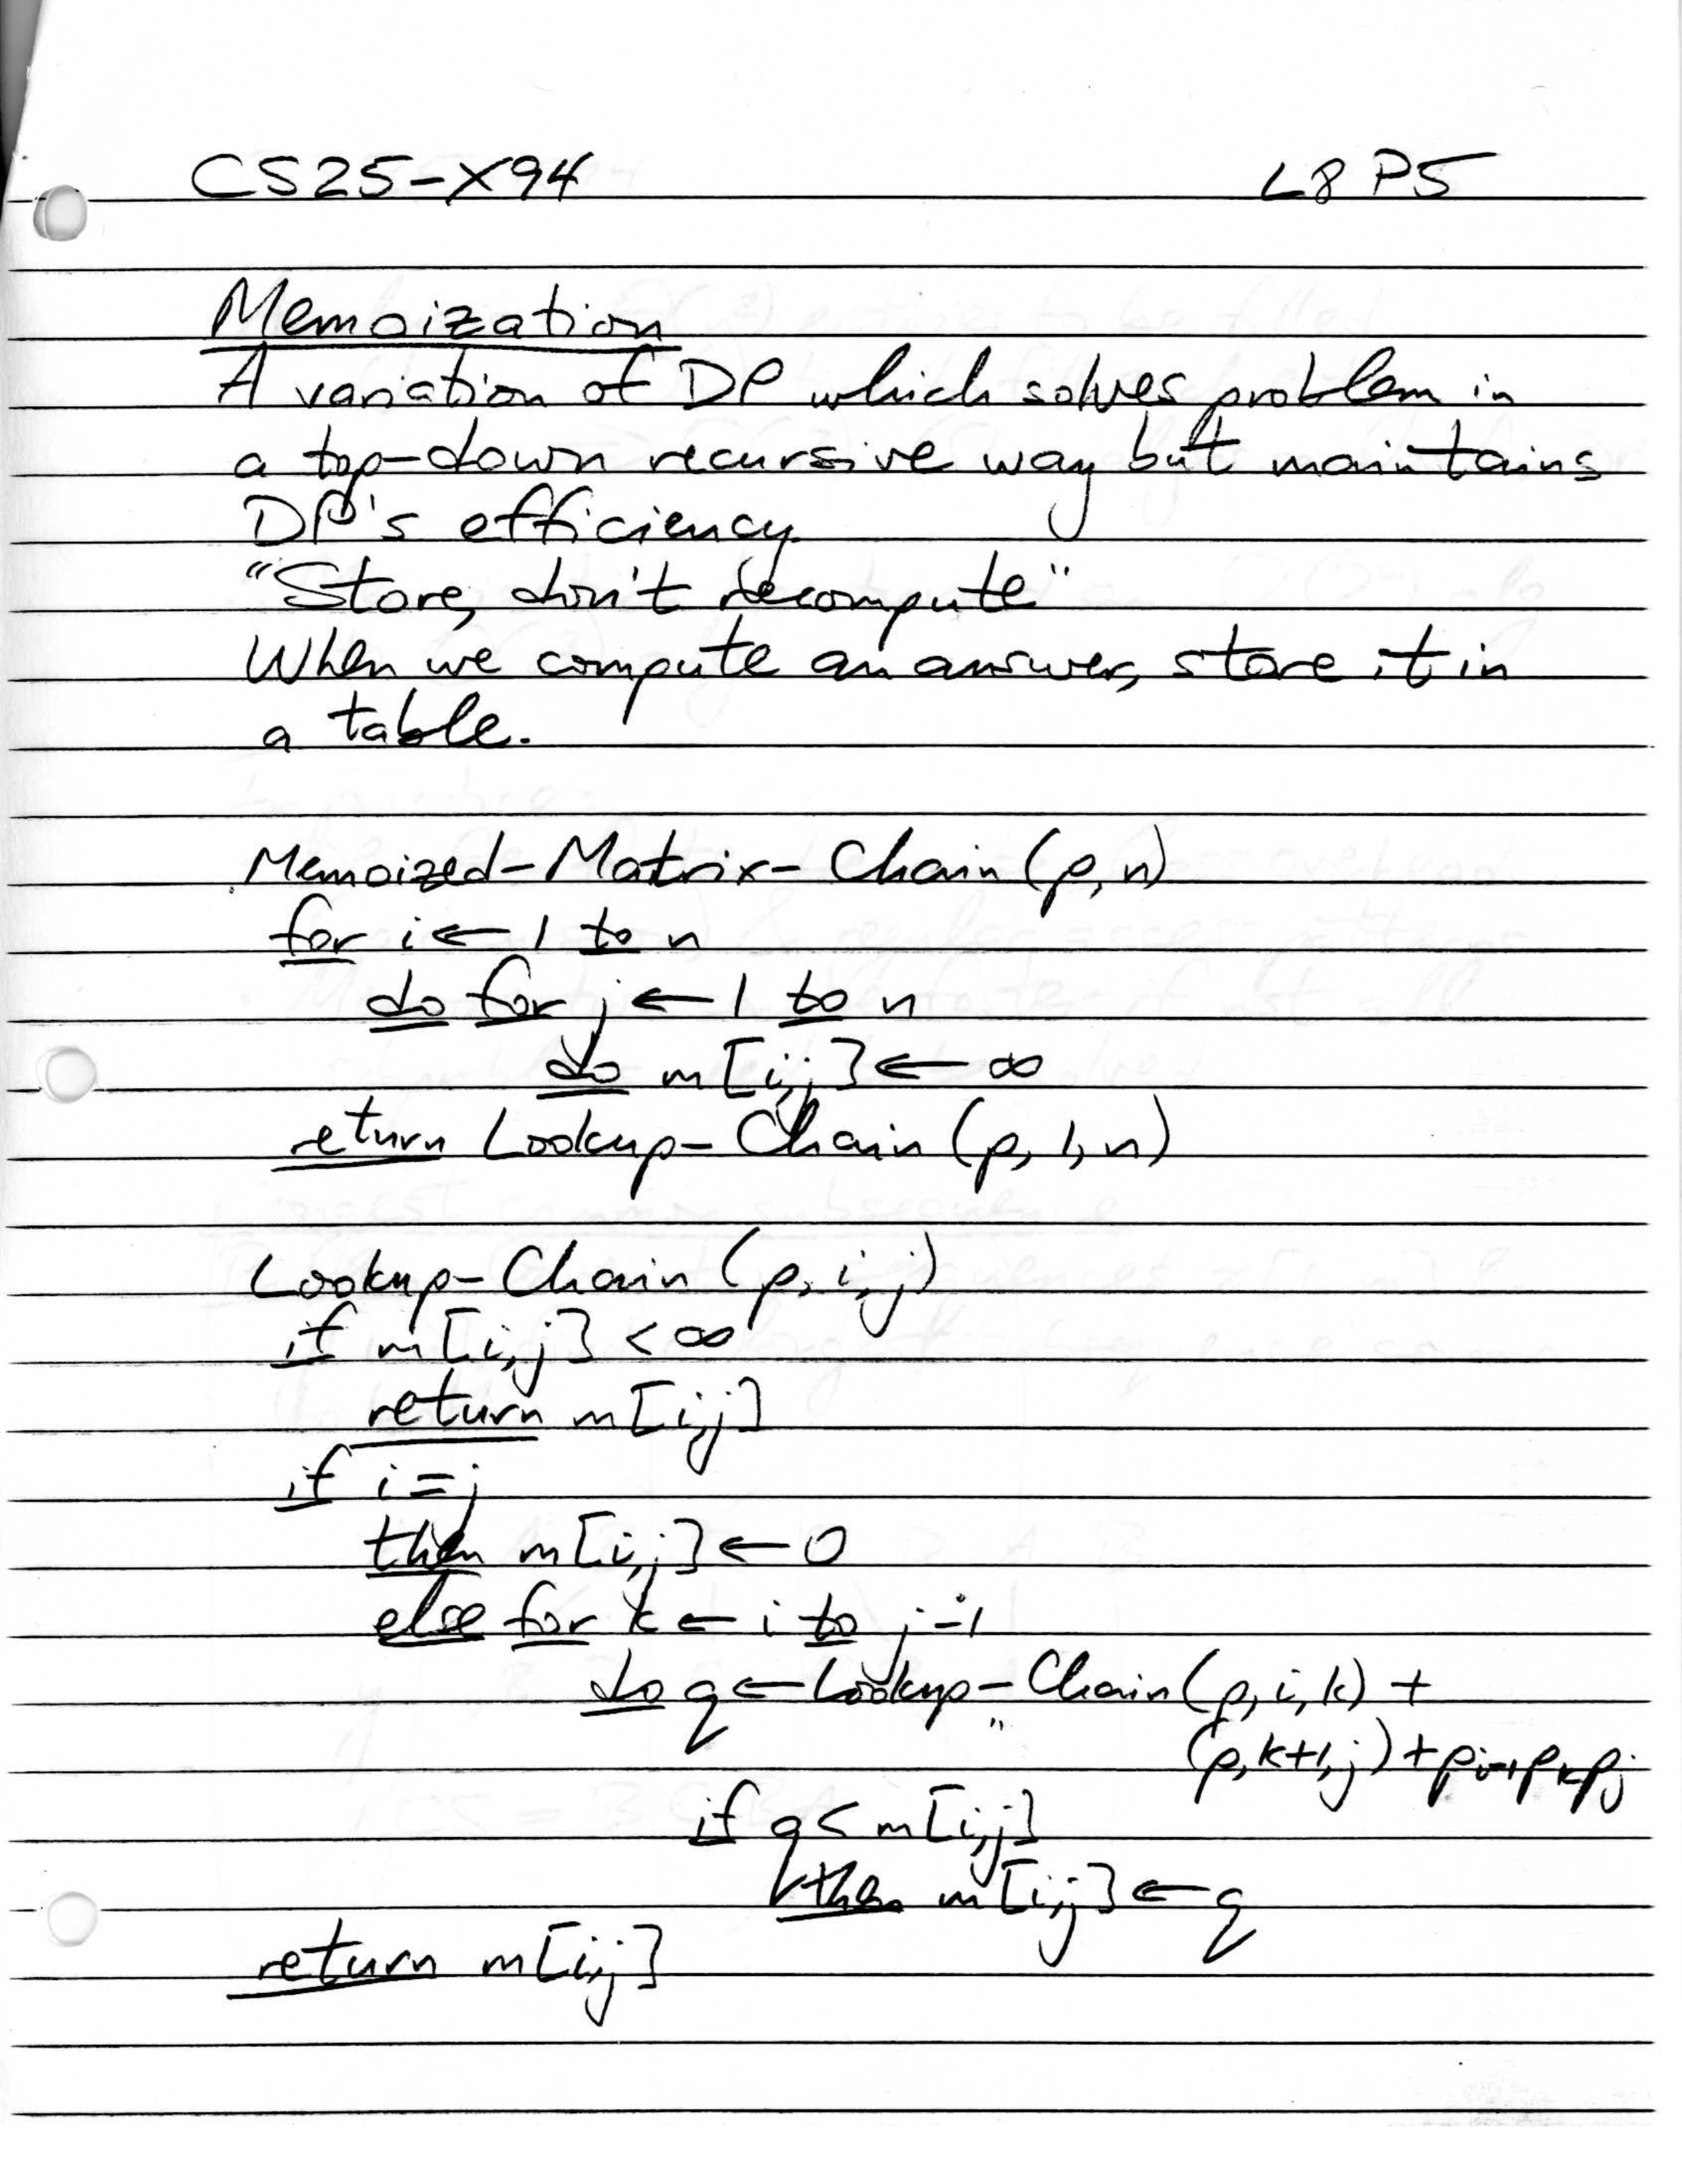 CS25-X94 L8 P5
Memoization
A variation of DP which solves problem in
a top-down recursive way but maintains
DP's efficiency.
"Store, don't recompute"
When we compute an answer, store it in
a table.
Memoized-Matrix-Chain(p,n)
for i ← 1 to n
do for j ← 1 to n
do m[i,j] ← ∞
return Lookup-Chain(p,1,n)
Lookup-Chain(p,i,j)
if m[i,j] < ∞
return m[i,j]
if i=j
then m[i,j] ← 0
else for k ← i to j-1
do q ← Lookup-Chain(p,i,k) +
" (p,k+1,j)+pi-1pkpj
if q < m[i,j]
then m[i,j] ← q
return m[i,j]